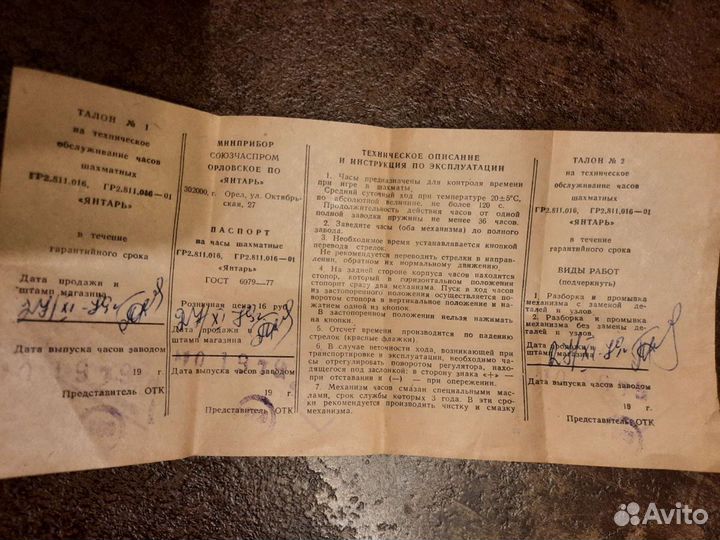 ТАЛОН № 1
на техническое
обслуживание часов
шахматных
ГР2.811.016, ГР2.811.016—01
«ЯНТАРЬ»
в течение
гарантийного срока
Дата продажи и
штамп магазина
Дата выпуска часов заводом
19 г.
Представитель ОТК
МИНПРИБОР
СОЮЗЧАСПРОМ
ОРЛОВСКОЕ ПО
«ЯНТАРЬ»
302000, г. Орел, ул. Октябрь-
ская, 27
ПАСПОРТ
на часы шахматные
ГР2.811.016, ГР2.811.016—01
«Янтарь»
ГОСТ 6079—77
Розничная цена 16 руб
Дата продажи
штамп магазина
Дата выпуска часов заводом
19 г.
Представитель ОТК
ТЕХНИЧЕСКОЕ ОПИСАНИЕ
И ИНСТРУКЦИЯ ПО ЭКСПЛУАТАЦИИ
1. Часы предназначены для контроля времени
при игре в шахматы.
Средний суточный ход при температуре 20±5°С,
по абсолютной величине, не более 120 с.
Продолжительность действия часов от одной
полной заводки пружины не менее 36 часов.
2. Заведите часы (оба механизма) до полного
завода.
3. Необходимое время устанавливается кнопкой
перевода стрелок.
Не рекомендуется переводить стрелки в направле-
нии, обратном их нормальному движению
4. На задней стороне корпуса часов находится
стопор, который в горизонтальном положении
стопорит сразу два механизма. Пуск в ход часов
из застопоренного положения осуществляется по-
воротом стопора в вертикальное положение и на-
жатием одной из кнопок.
В застопоренном положении нельзя нажимать
на кнопки.
5. Отсчет времени производится по падению
стрелок (красные флажки).
6. В случае неточности хода, возникающей при
транспортировке и эксплуатации, необходимо ча-
сы отрегулировать поворотом регулятора, находя-
щегося под заслонкой: в сторону знака «+» — при
отставании и (—) — при опережении.
7. Механизм часов смазан специальными мас-
лами, срок службы которых 3 года. В эти сро-
ки рекомендуется производить чистку и смазку
механизма.
ТАЛОН № 2
на техническое
обслуживание часов
шахматных
ГР2.811.016, ГР2.811.016—01
«ЯНТАРЬ»
в течение
гарантийного срока
ВИДЫ РАБОТ
(подчеркнуть)
1. Разборка и промывка
механизма с заменой де-
талей и узлов.
2. Разборка и промывка
механизма без замены де-
талей и узлов
Дата продажи и
штамп магазина
Дата выпуска часов заводом
19 г.
Представитель ОТК
Avito